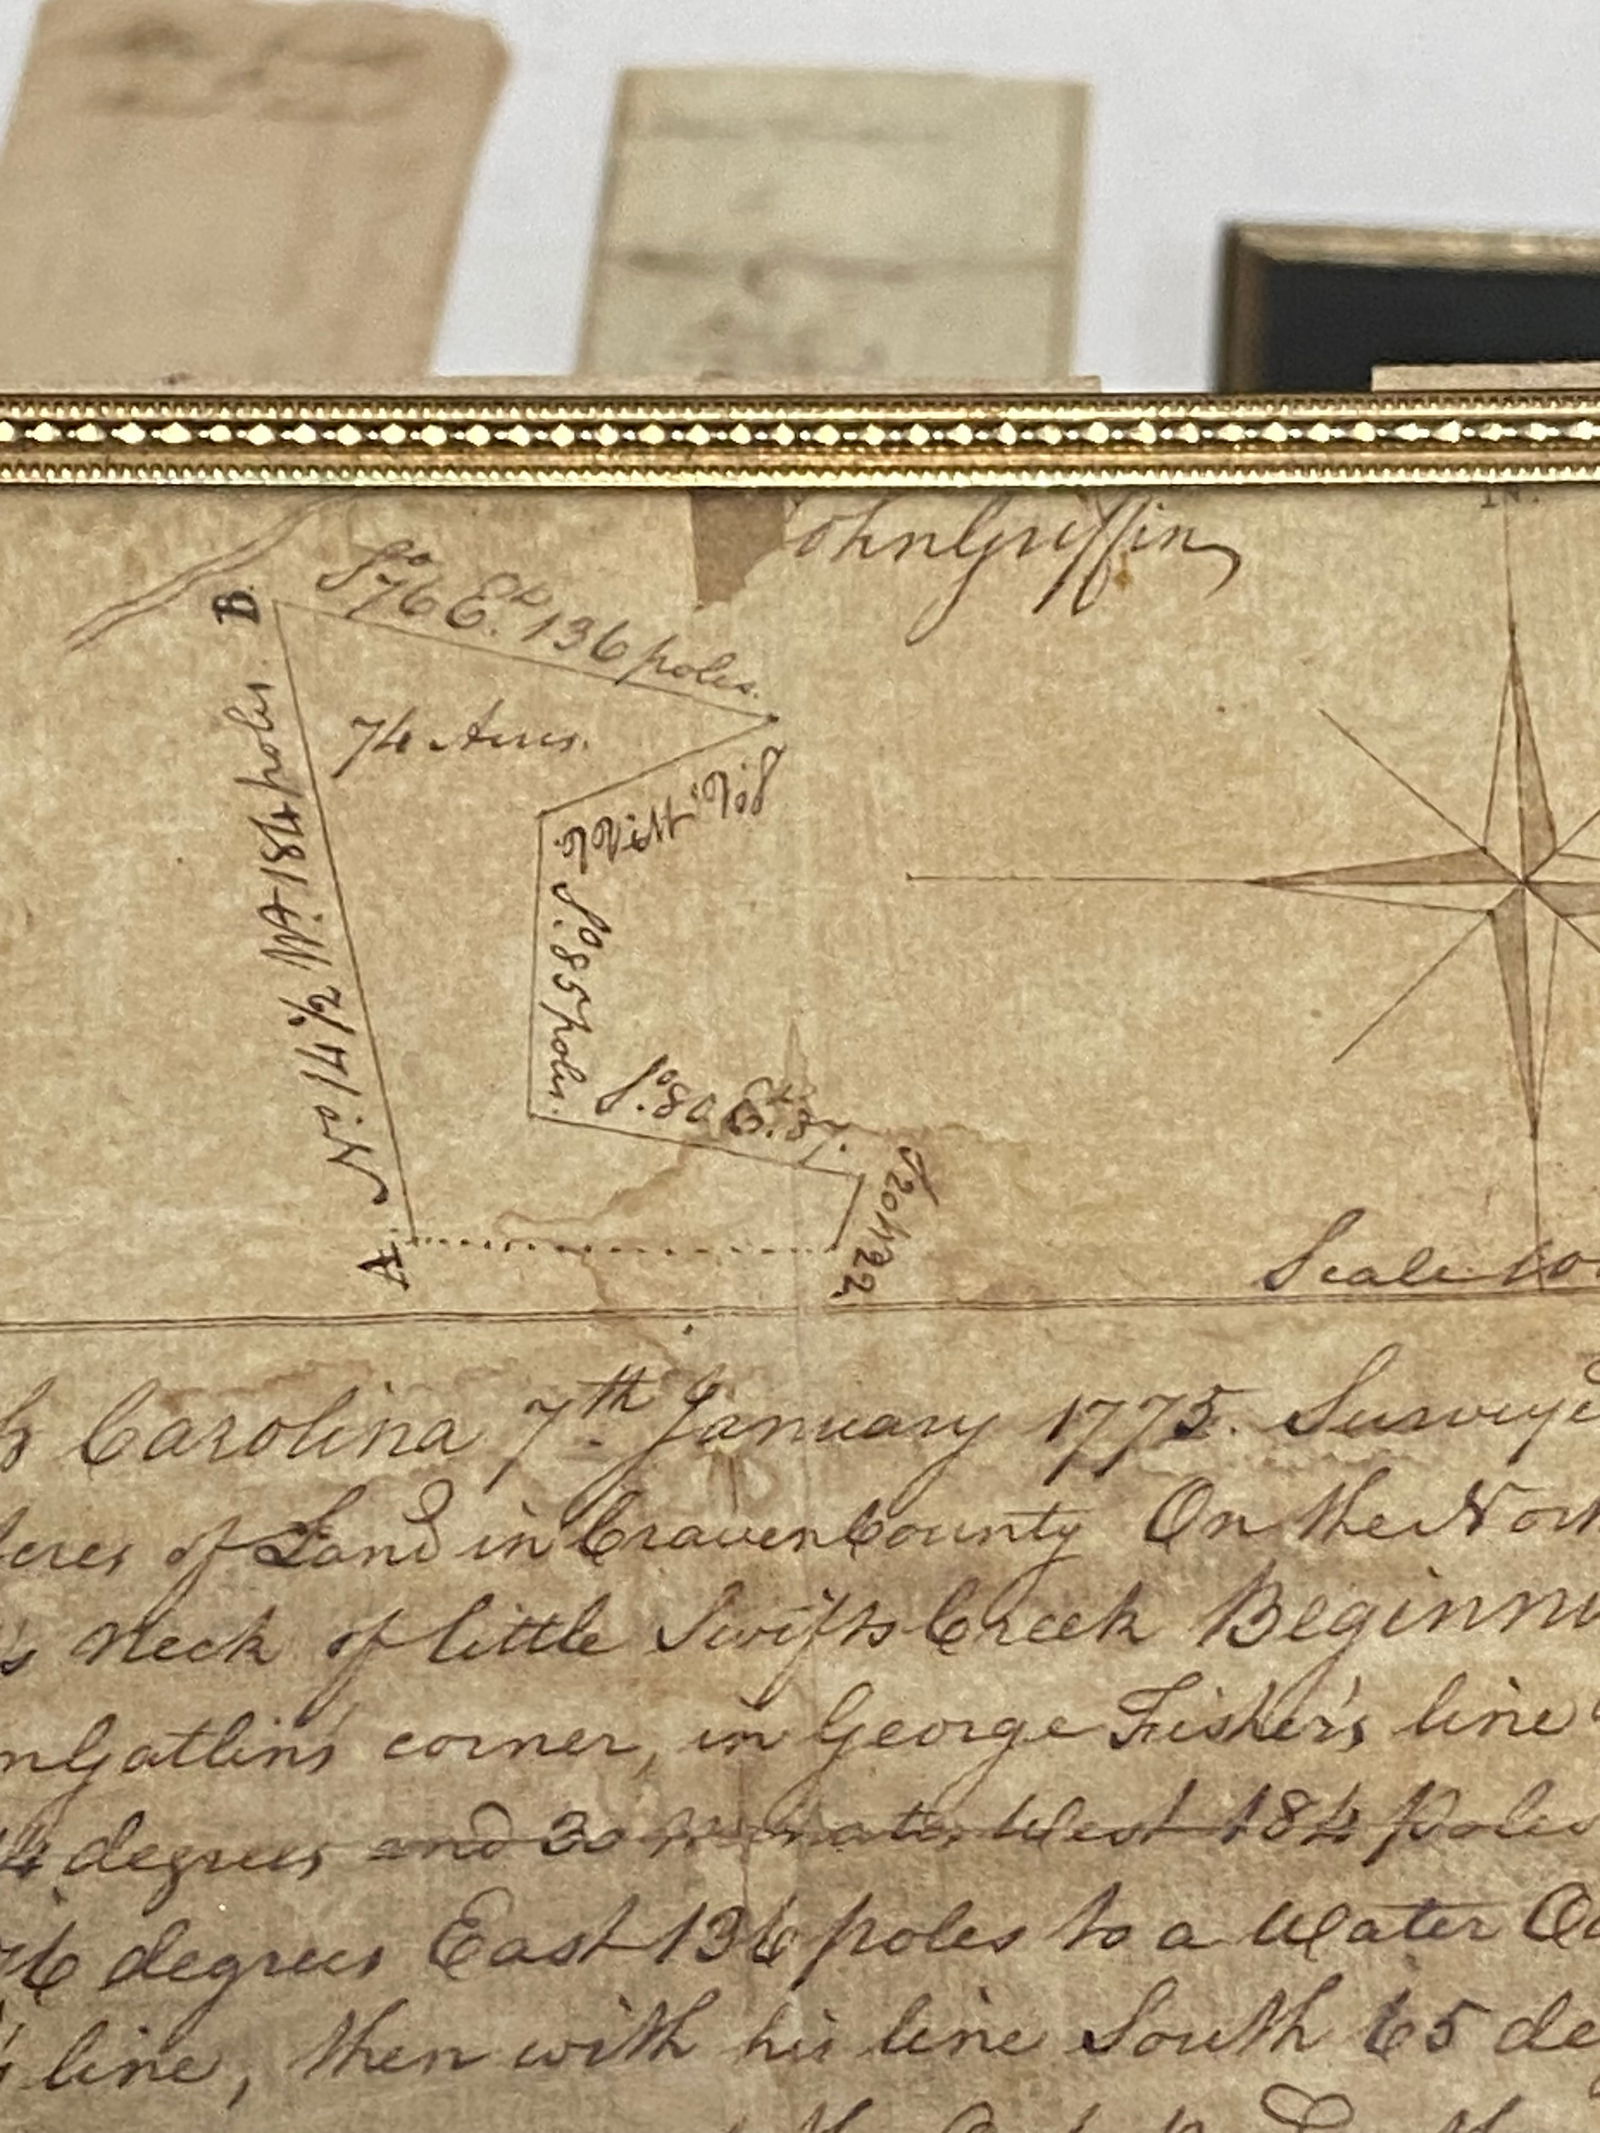 N.
ohn Griffin
B
So 76 Et. 136 poles.
74 Acres.
No. 14 1/2 Wt 184 poles.
So. 85 poles.
So. 80 Et. 87.
S 20 W 22
A
Scale 100
h Carolina 7th January 1775. Surveye
Acres of Land in Craven County On the Nort
's Neck of little Swifts Creek Beginni
n Gatlin's corner, in George Fisher's line
14 degrees and 30 minutes West 184 Poles
76 degrees East 136 poles to a Water Oa
's line, then with his line South 65 de